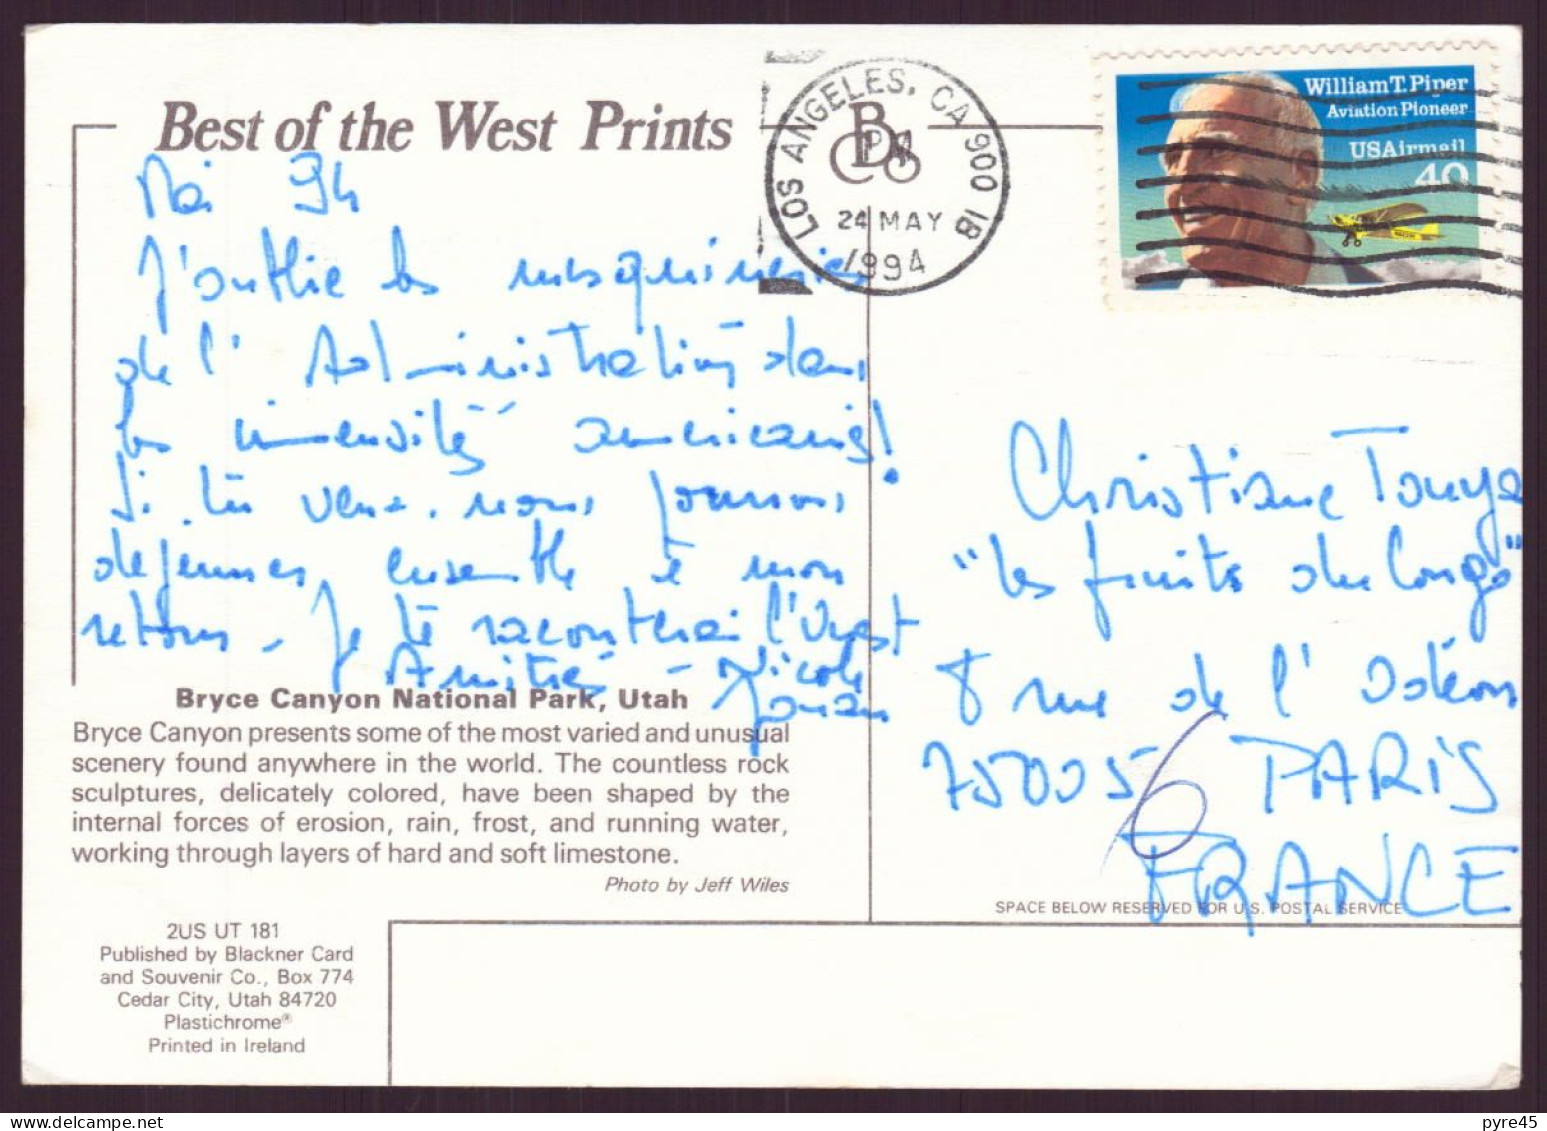 Best of the West Prints
LOS ANGELES, CA 900 1B
PM
24 MAY
1994
William T. Piper
Aviation Pioneer
USAirmail
40
Mai 94
J'oublie les mesquineries
de l'Administration dans
les immensités américaines!
Si tu veux, nous pourrons
dejeuner ensemble à mon
retour. Je te raconterai l'Ouest
Amitiés - Nicole
Christiane Tourya
"les fruits du Congo"
8 rue de l'Odéon
75005 PARIS
6
FRANCE
Bryce Canyon National Park, Utah
Bryce Canyon presents some of the most varied and unusual
scenery found anywhere in the world. The countless rock
sculptures, delicately colored, have been shaped by the
internal forces of erosion, rain, frost, and running water,
working through layers of hard and soft limestone.
Photo by Jeff Wiles
SPACE BELOW RESERVED FOR U.S. POSTAL SERVICE
2US UT 181
Published by Blackner Card
and Souvenir Co., Box 774
Cedar City, Utah 84720
Plastichrome®
Printed in Ireland
pyre45